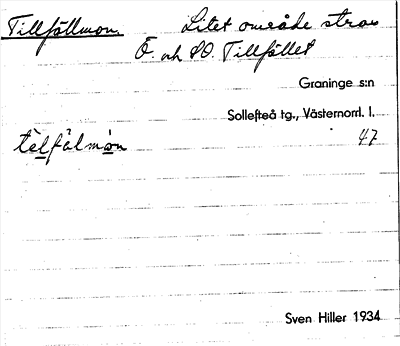 Tillfällmon. Litet område strax
Ö. och SO. Tillfället
Graninge s:n
Sollefteå tg., Västernorrl. l.
telfälmon 47
Sven Hiller 1934